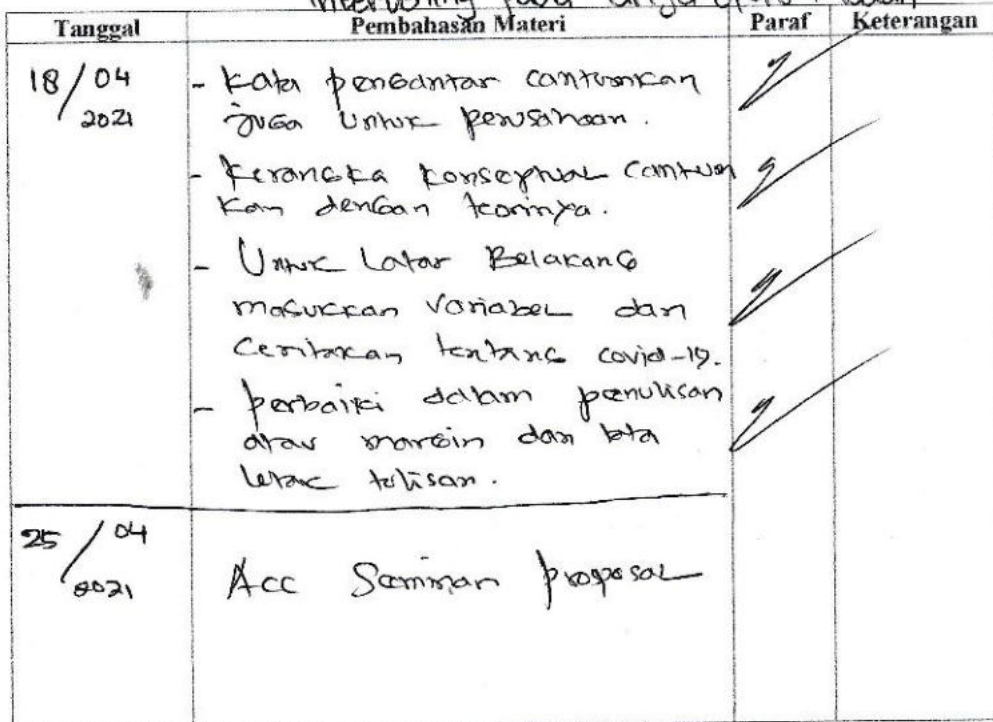 Intervening pada
Tanggal Pembahasan Materi Paraf Keterangan
18/04 2021
- Kata pengantar cantumkan
juga untuk perusahaan.
- Kerangka konseptual cantum
kan dengan teorinya.
- Untuk Latar Belakang
masukkan Variabel dan
Ceritakan tentang covid-19.
- perbaiki dalam penulisan
atau margin dan tata
letak tulisan.
25/04 2021
Acc Seminar proposal